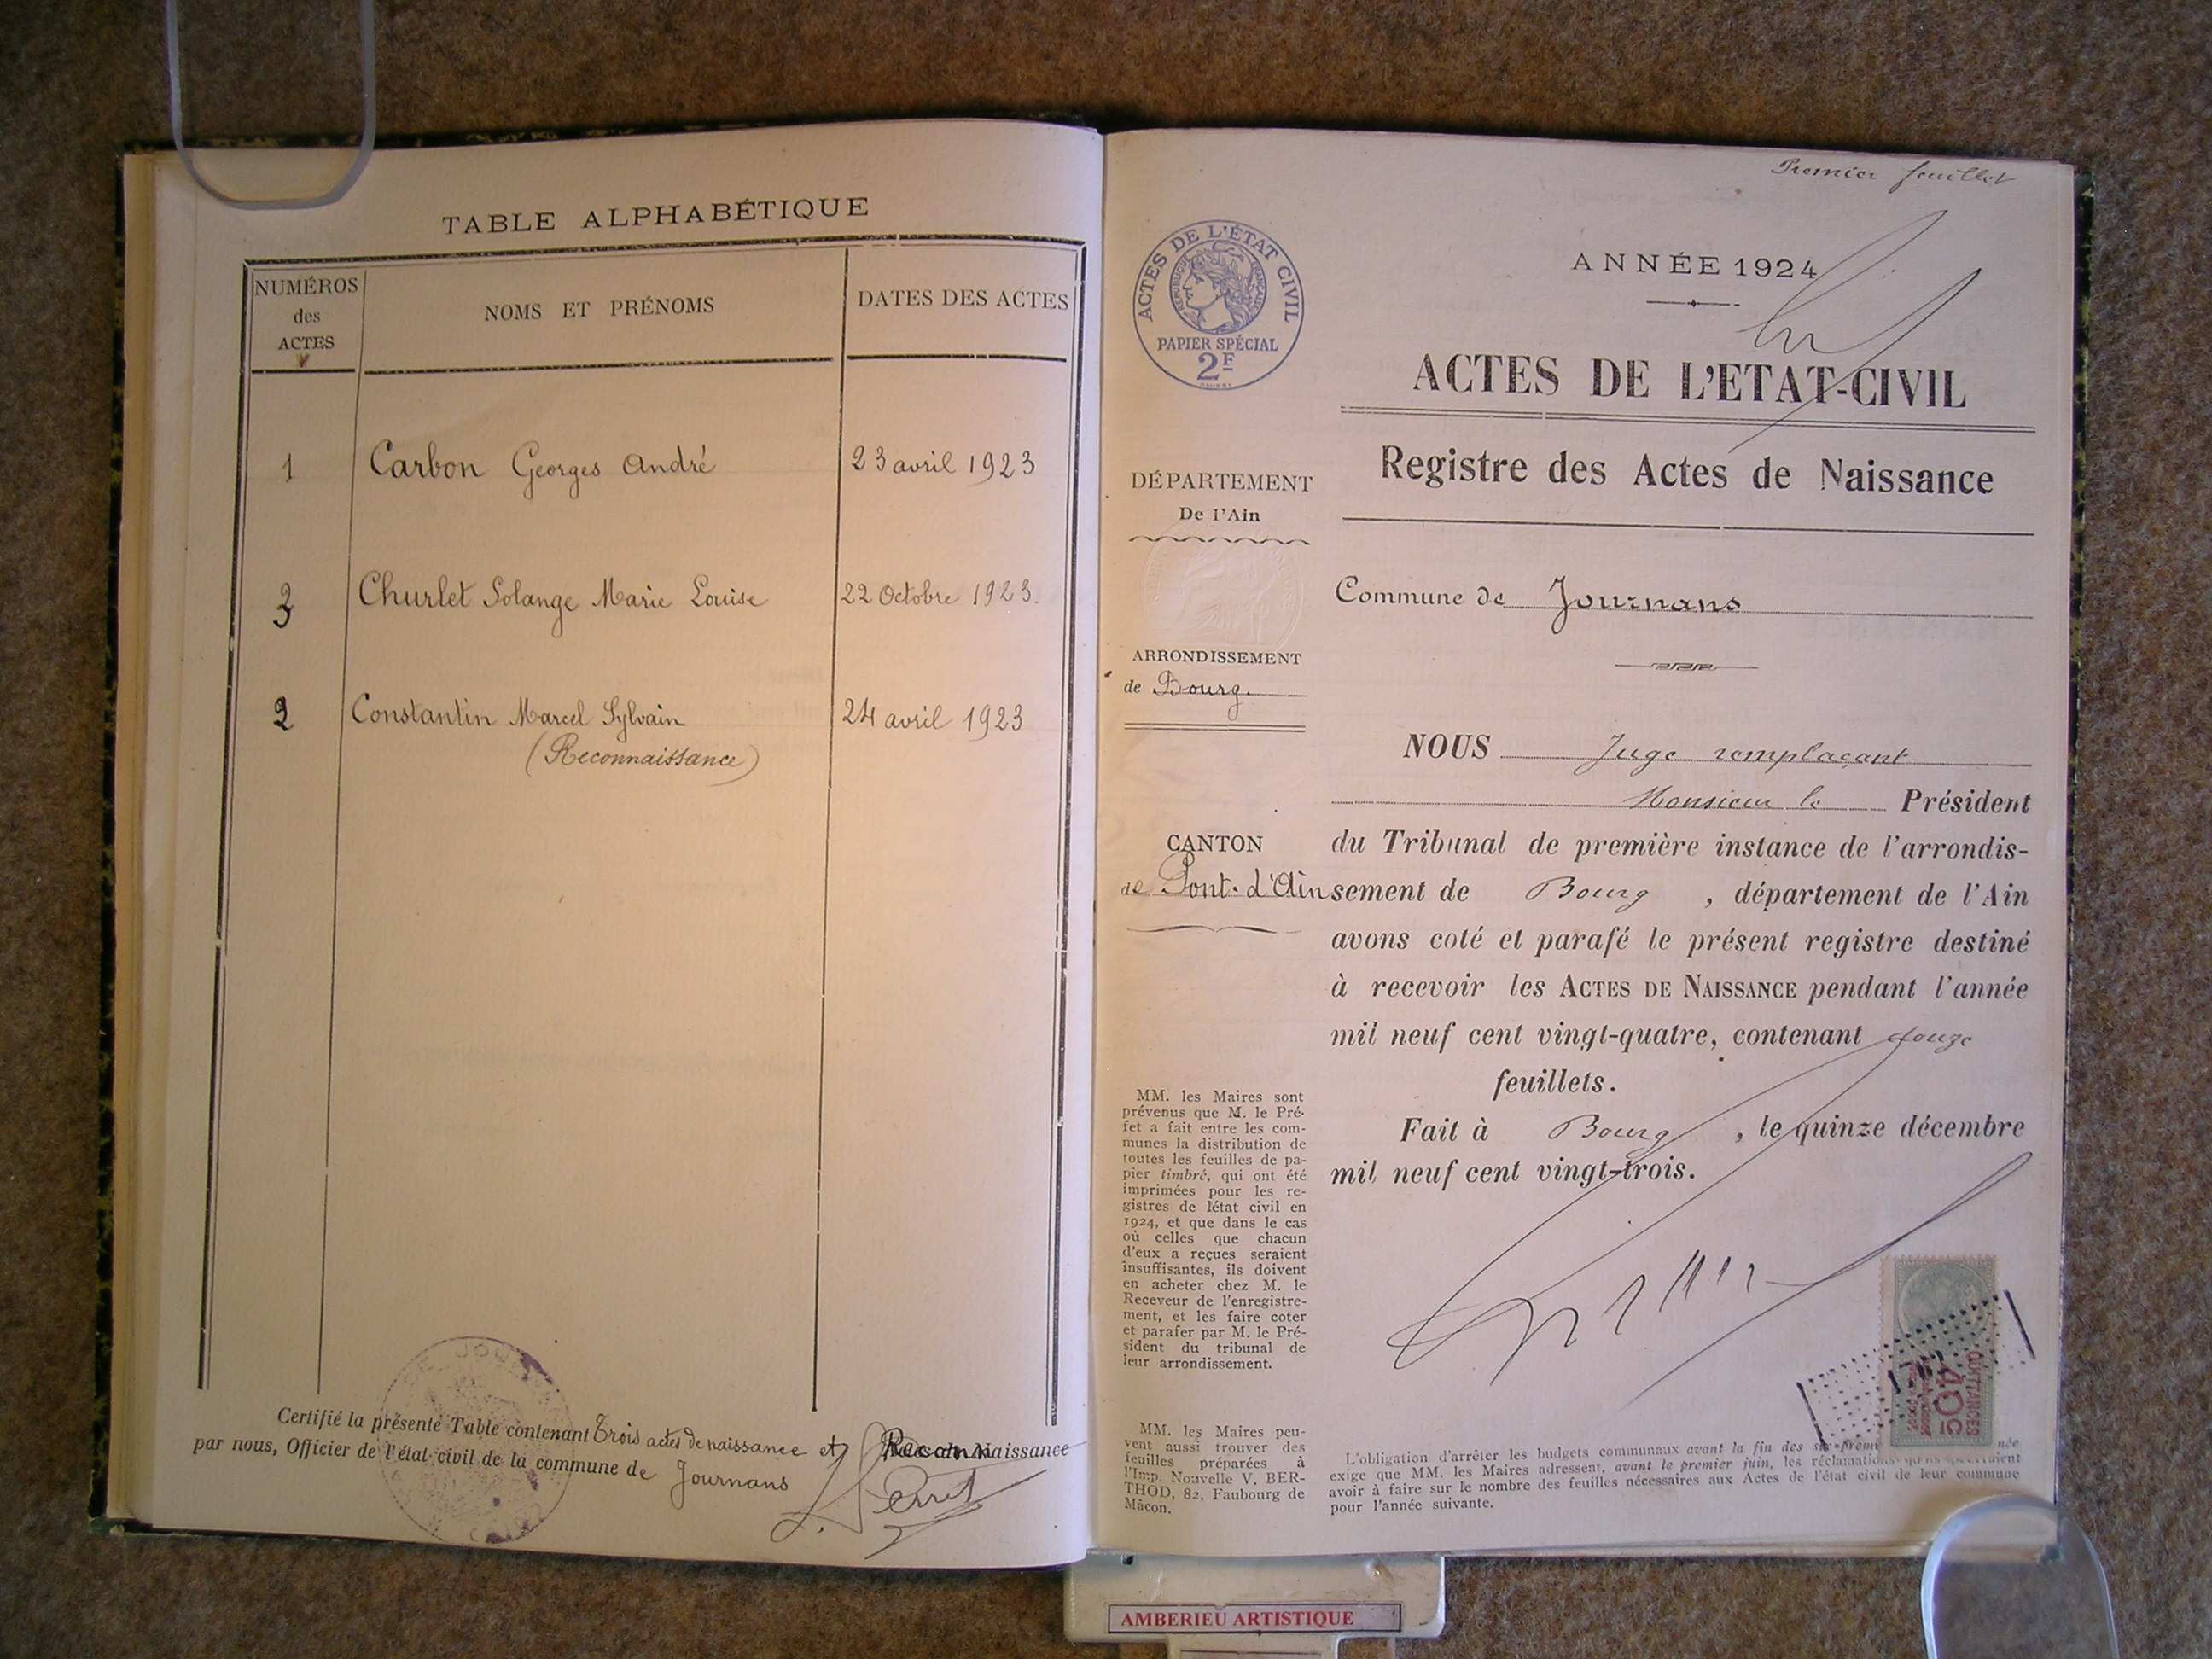 TABLE ALPHABÉTIQUE
NUMÉROS
des
ACTES
NOMS ET PRÉNOMS
DATES DES ACTES
1 Carbon Georges André 23 avril 1923
3 Churlet Solange Marie Louise 22 Octobre 1923.
2 Constantin Marcel Sylvain 24 avril 1923
(Reconnaissance)
Certifié la présente Table contenant Trois actes de naissance et Reconnaissance
par nous, Officier de l'état-civil de la commune de Journans
Perret
Premier feuillet
ACTES DE L'ÉTAT CIVIL
RÉPUBLIQUE FRANÇAISE
PAPIER SPÉCIAL
2F
ANNÉE 1924
ACTES DE L'ETAT-CIVIL
Registre des Actes de Naissance
DÉPARTEMENT
De l'Ain
Commune de Journans
ARRONDISSEMENT
de Bourg.
CANTON
de Pont-d'Ain
NOUS Juge remplaçant
Monsieur le Président
du Tribunal de première instance de l'arrondis-
sement de Bourg, département de l'Ain
avons coté et parafé le présent registre destiné
à recevoir les ACTES DE NAISSANCE pendant l'année
mil neuf cent vingt-quatre, contenant douze
feuillets.
Fait à Bourg, le quinze décembre
mil neuf cent vingt-trois.
MM. les Maires sont
prévenus que M. le Pré-
fet a fait entre les com-
munes la distribution de
toutes les feuilles de pa-
pier timbré, qui ont été
imprimées pour les re-
gistres de létat civil en
1924, et que dans le cas
où celles que chacun
d'eux a reçues seraient
insuffisantes, ils doivent
en acheter chez M. le
Receveur de l'enregistre-
ment, et les faire coter
et parafer par M. le Pré-
sident du tribunal de
leur arrondissement.
MM. les Maires peu-
vent aussi trouver des
feuilles préparées à
l'Imp. Nouvelle V. BER-
THOD, 82, Faubourg de
Mâcon.
QUITTANCES
40c
L'obligation d'arrêter les budgets communaux avant la fin des six premi
exige que MM. les Maires adressent, avant le premier juin, les réclamations
avoir à faire sur le nombre des feuilles nécessaires aux Actes de l'état civil de leur commune
pour l'année suivante.
AMBERIEU ARTISTIQUE